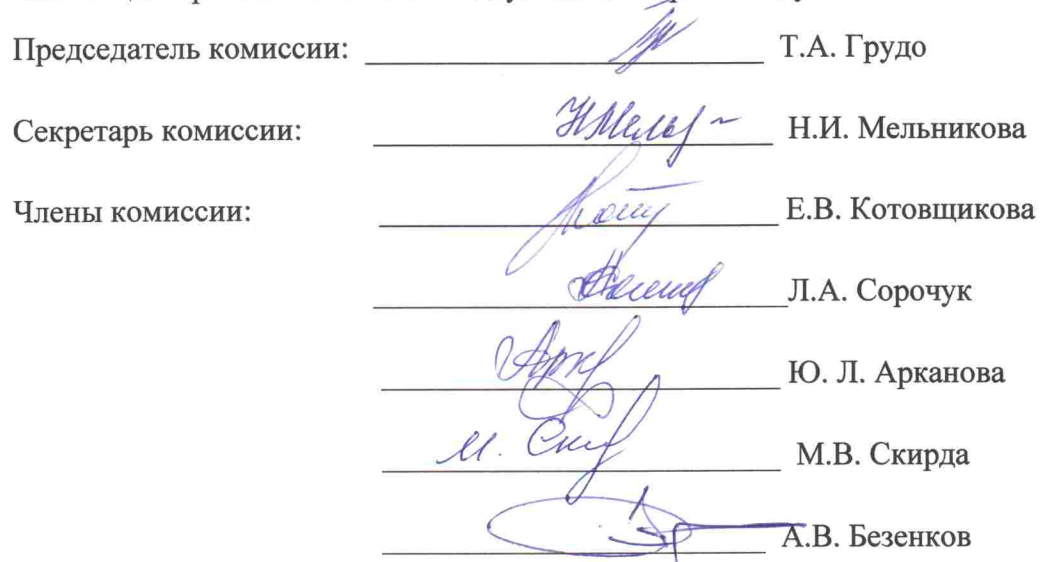 Председатель комиссии: Т.А. Грудо
Секретарь комиссии: Н.И. Мельникова
Члены комиссии: Е.В. Котовщикова
Л.А. Сорочук
Ю. Л. Арканова
М. Ски М.В. Скирда
А.В. Безенков